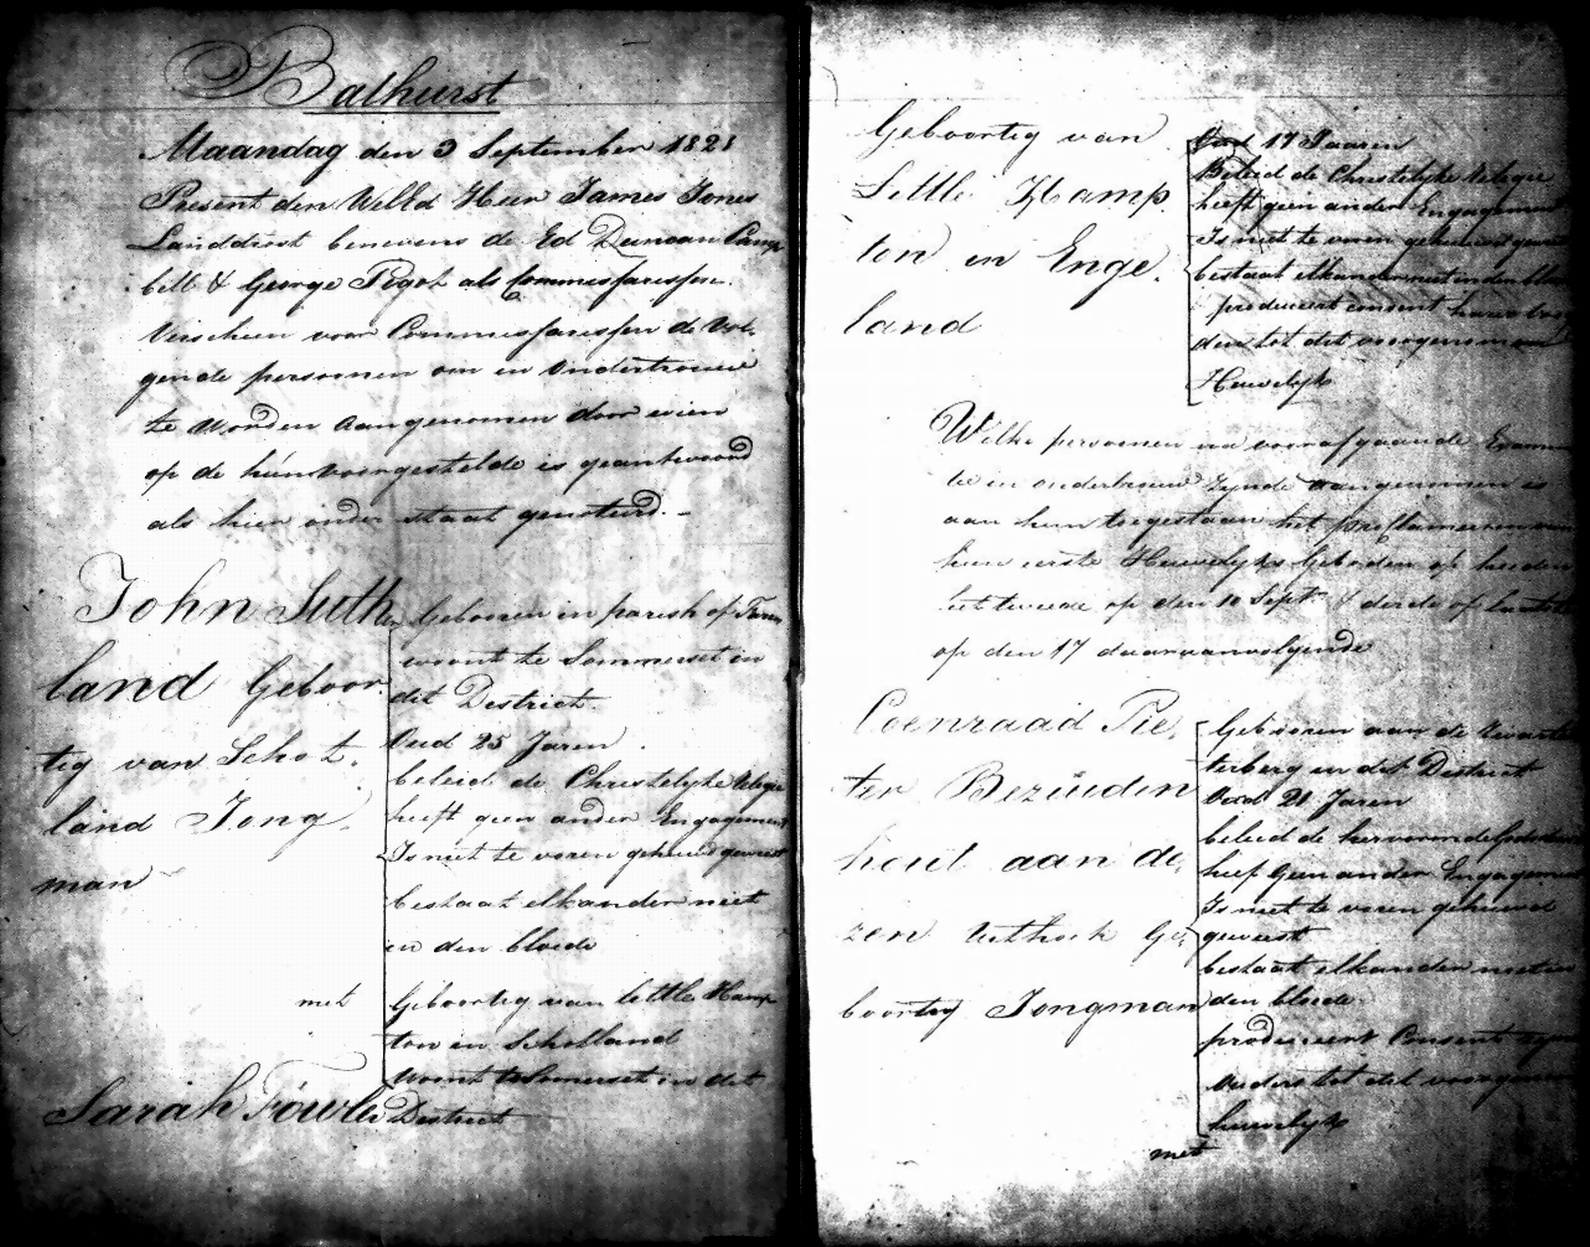 Bathurst
Maandag den 3 September 1821
Present den WelEd Heer James Jones
Landdrost benevens de Ed Duncan Camp
bell & George Pigot als Commissarissen.
Verscheen voor Commissarissen de Vol,
gende persoonen om in Ondertrouw
te worden aangenomen door wien
op de hún voorgestelde is geantwoord
als hier onder staat genoteerd. -
John Suth,
land Geboor,
tig van Schot,
land Jong,
man
Gebooren in parish of
woont te Sommerset in
dit District.
Oud 25 Jaren
beleid de Christelyke Religie
heeft geen ander Engagement
Is niet te voren gehuwd geweest
bestaat elkander niet
in den bloede
met
Sarah Fowler
Geboortig van Little Hamp
ton in Schotland
Woont te Somerset in dit
District
Geboortig van
Little Hamp,
ton in Enge,
land
Oud 17 Jaaren
Beleid de Christelyke Religie
heeft geen ander Engagement
Is niet te voren gehuwd geweest
bestaat elkander niet in den bloede
produceert consent harer
den tot dit voorgenomen
Heuwelyk
Welke persoonen na voorafgaande Examen
tie in ondertrouw zynde aangenomen is
aan hun toegestaan het proclameeren van
hun eerste Heuwelyks Geboden op heeden
het tweede op den 10 Sept. & derde of laatste
op den 17 daaraanvolgende
Coenraad Pie,
ter Bezúiden
hout aan de,
zen Uithoek Ge,
boortig Jongman
Gebooren aan de Zwarte
terberg in dit District
Oud 21 Jaren
beleid de hervormde Godsdienst
heef Geen ander Engagement
Is niet te voren gehuwd
geweest
bestaat elkander niet in
den bloede
produceert Consent
Ouders tot dit voorgenomen
huwelyk
met